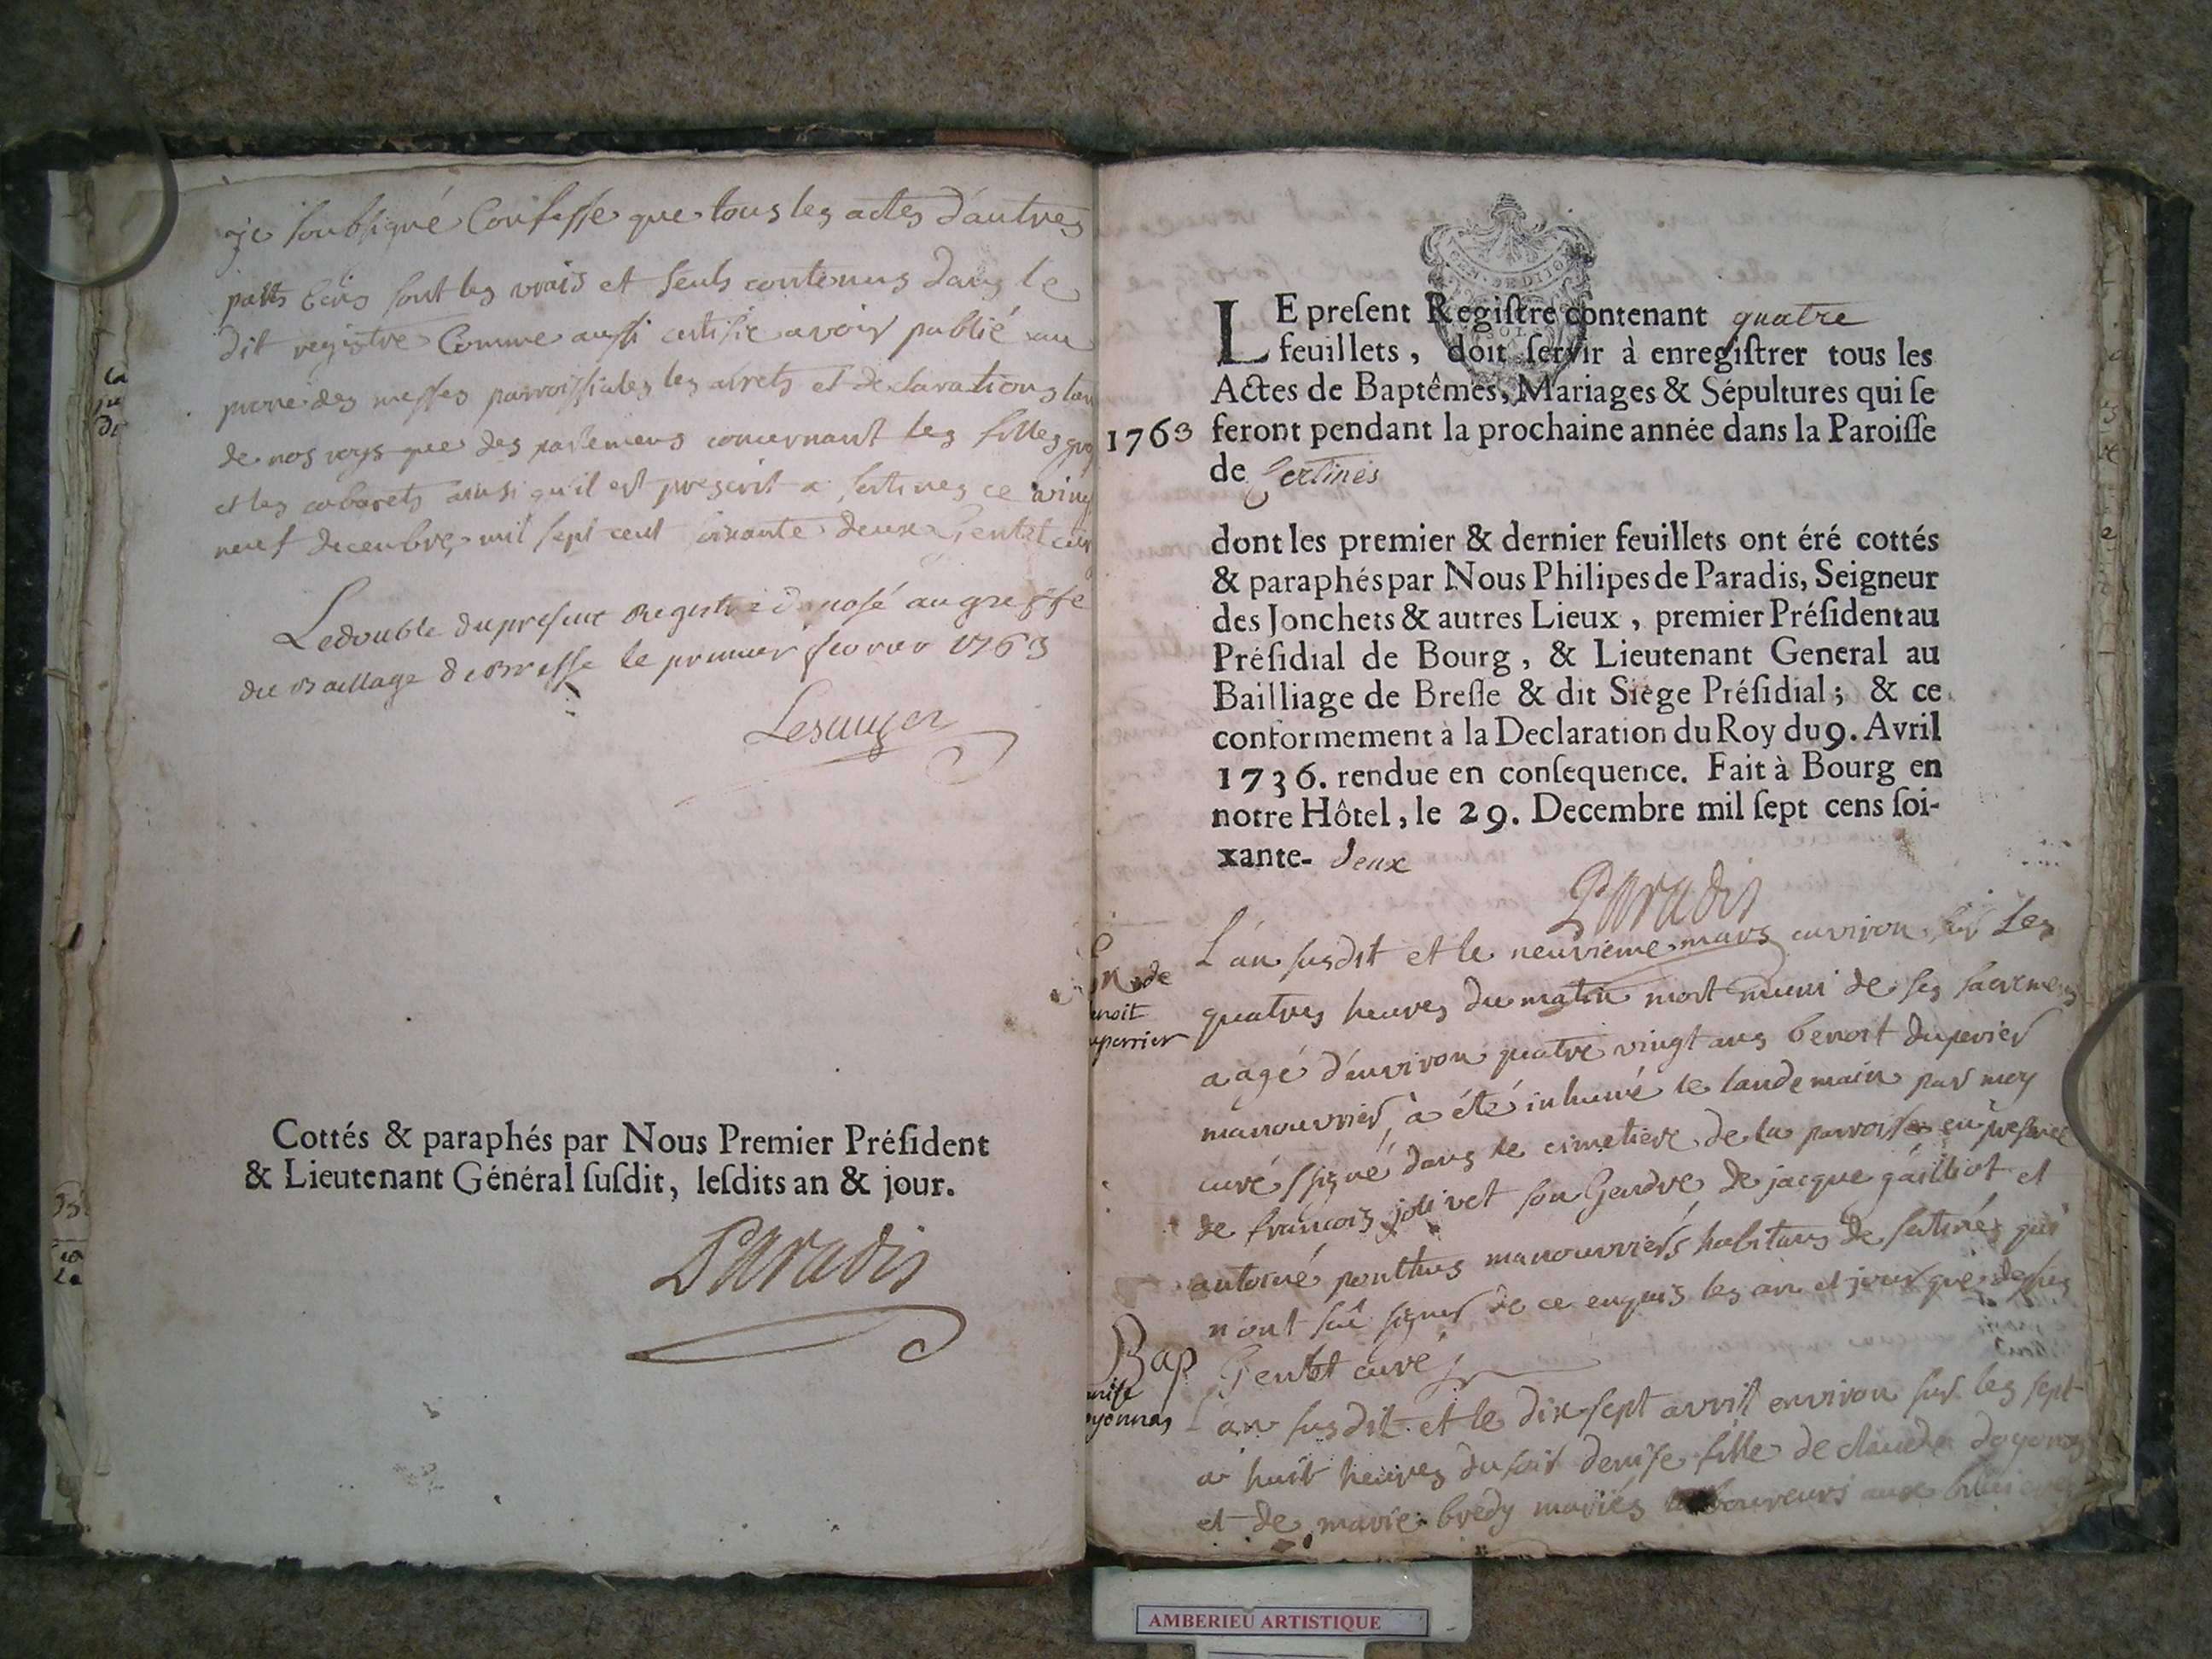 je soubsigné Confesse que tous les actes d'autres
parts écris sont les vrais et seuls contenus dans le
dit registre Comme aussi certifie avoir publié au
prone des messes parroissiales les arrets et declarations tan
de nos roys que des parlemens concernant les filles
et les cabarets ainsi qu'il est prescrit a sertines ce vin
neuf decembre mil sept cent soixante deux Gentet curé
Le double du present Registre deposé au greffe
du Baillage de Bresse le premier fevrier 1763
Cottés & paraphés par Nous Premier Préſident
& Lieutenant Général ſuſdit, leſdits an & jour.
Paradis
GEN. DE DIJON
LE preſent Regiſtre contenant quatre
feuillets, doit ſervir à enregiſtrer tous les
Actes de Baptêmes, Mariages & Sépultures qui ſe
1763 feront pendant la prochaine année dans la Paroiſſe
de Sertines
dont les premier & dernier feuillets ont éré cottés
& paraphés par Nous Philipes de Paradis, Seigneur
des Jonchets & autres Lieux, premier Préſident au
Préſidial de Bourg, & Lieutenant General au
Bailliage de Breſſe & dit Siége Préſidial; & ce
conformement à la Declaration du Roy du 9. Avril
1736. rendue en conſequence. Fait à Bourg en
notre Hôtel, le 29. Decembre mil ſept cens ſoi-
xante- deux
Paradis
de
enoit
uperrier
L'an susdit et le neuvieme mars environ sur les
quatres heures du matin mort muni de ses sacremens
aagé d'environ quatre vingt ans benoit duperier
manouvrier, à été inhumé le landemain par moy
curé ssigné dans le cimetiere de la parroisse en presence
de francois jolivet son Gendre, de jacque gailliot et
antoine ponthus manouvriers habitans de sertines qui
n'ont sçû signer de ce enquis les an et jour que dessus
Gentet curé
Bap
enise
oyonnas
L'an susdit et le dix sept avril environ sur les sept
a huit heures du soir denise fille de claude doyonnas
et de marie bredy mariés laboureurs aux
AMBERIEU ARTISTIQUE